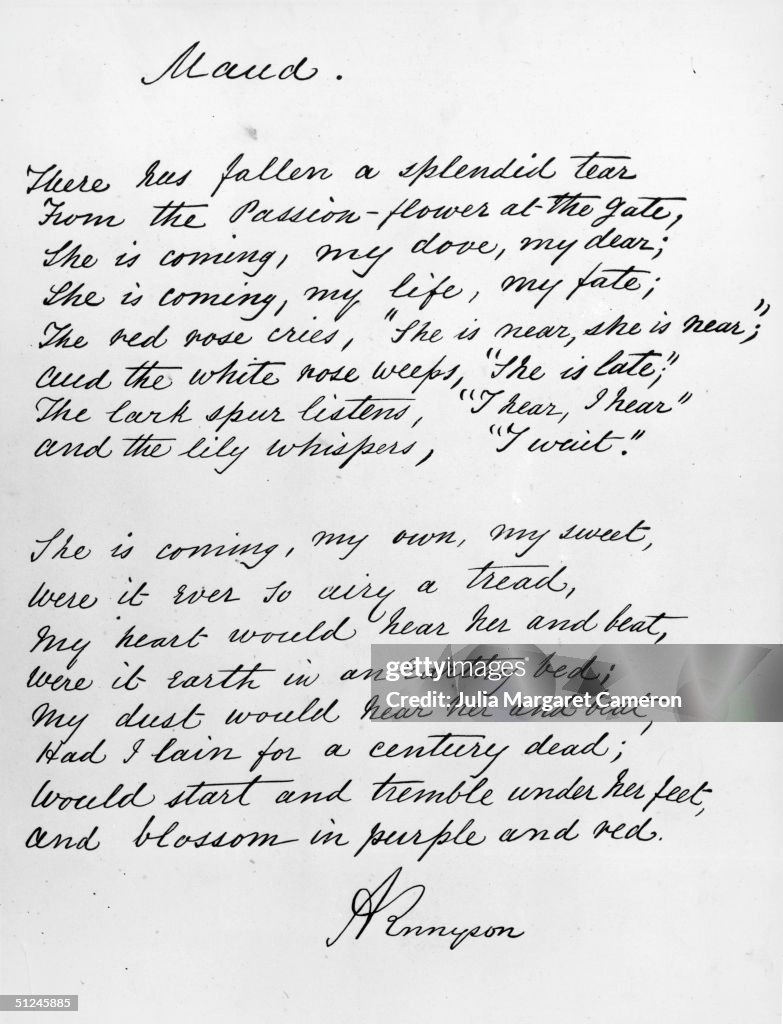 Maud.
There has fallen a splendid tear
From the Passion-flower at the gate,
She is coming, my dove, my dear;
She is coming, my life, my fate;
The red rose cries, "She is near, she is near";
and the white rose weeps, "She is late;"
The lark spur listens, "I hear, I hear"
and the lily whispers, "I wait."
She is coming, my own, my sweet,
Were it ever so airy a tread,
My heart would hear her and beat,
Were it earth in an earthy bed;
gettyimages
Julia Margaret Cameron
My dust would hear her and beat,
Had I lain for a century dead;
Would start and tremble under her feet,
and blossom in purple and red.
ATennyson
51245885